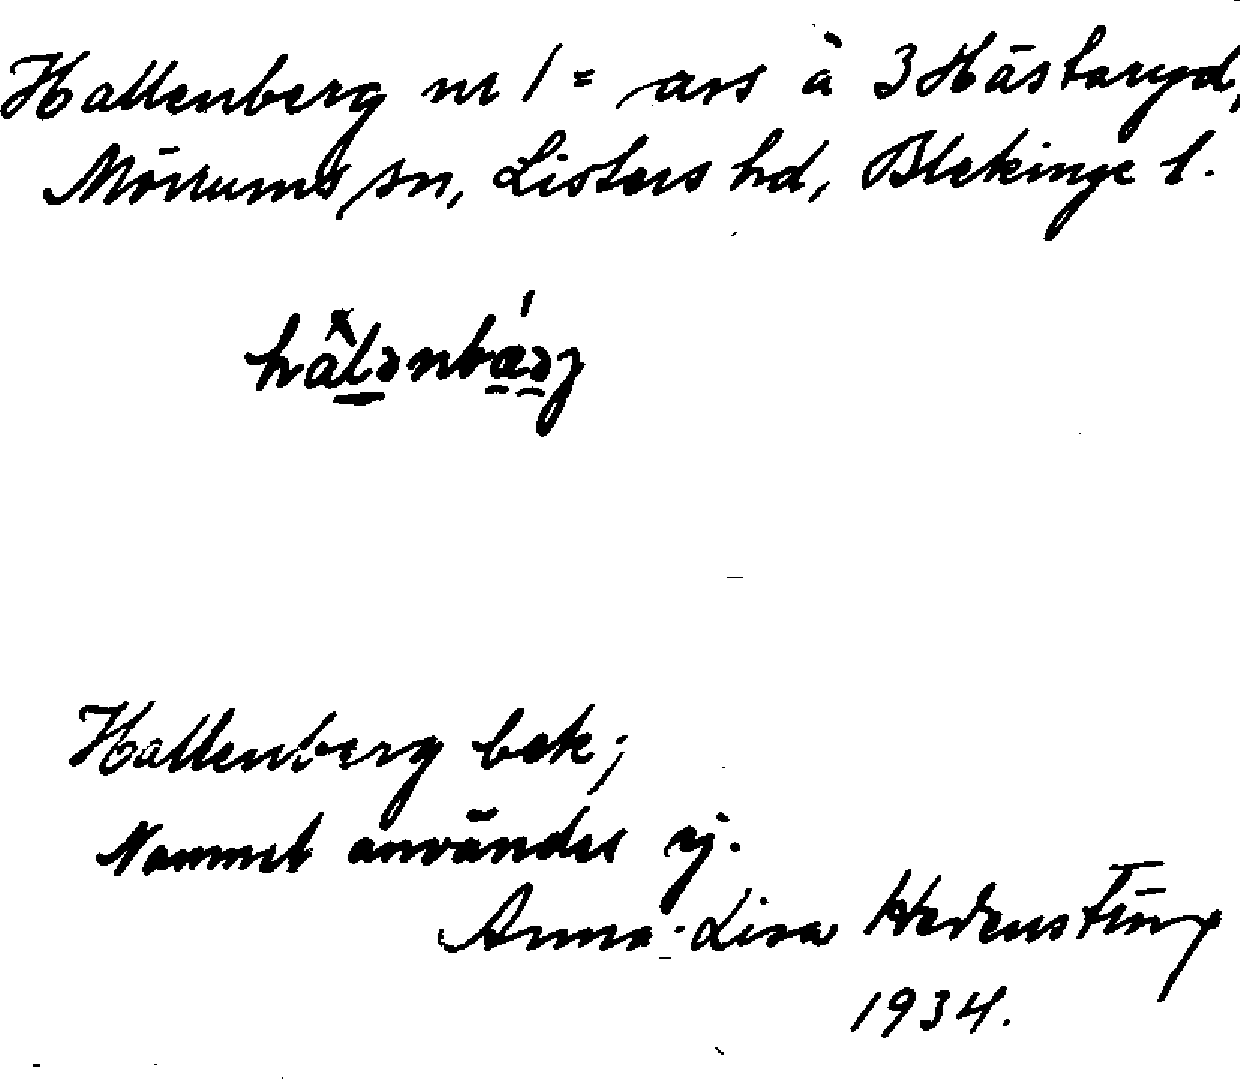 Hallenberg nr 1 = avs à 3 Hästaryd,
Mörrums sn, Listers hd, Blekinge l.
Hallenberg bek;
Namnet användes ej.
Anna-Lisa
1934.